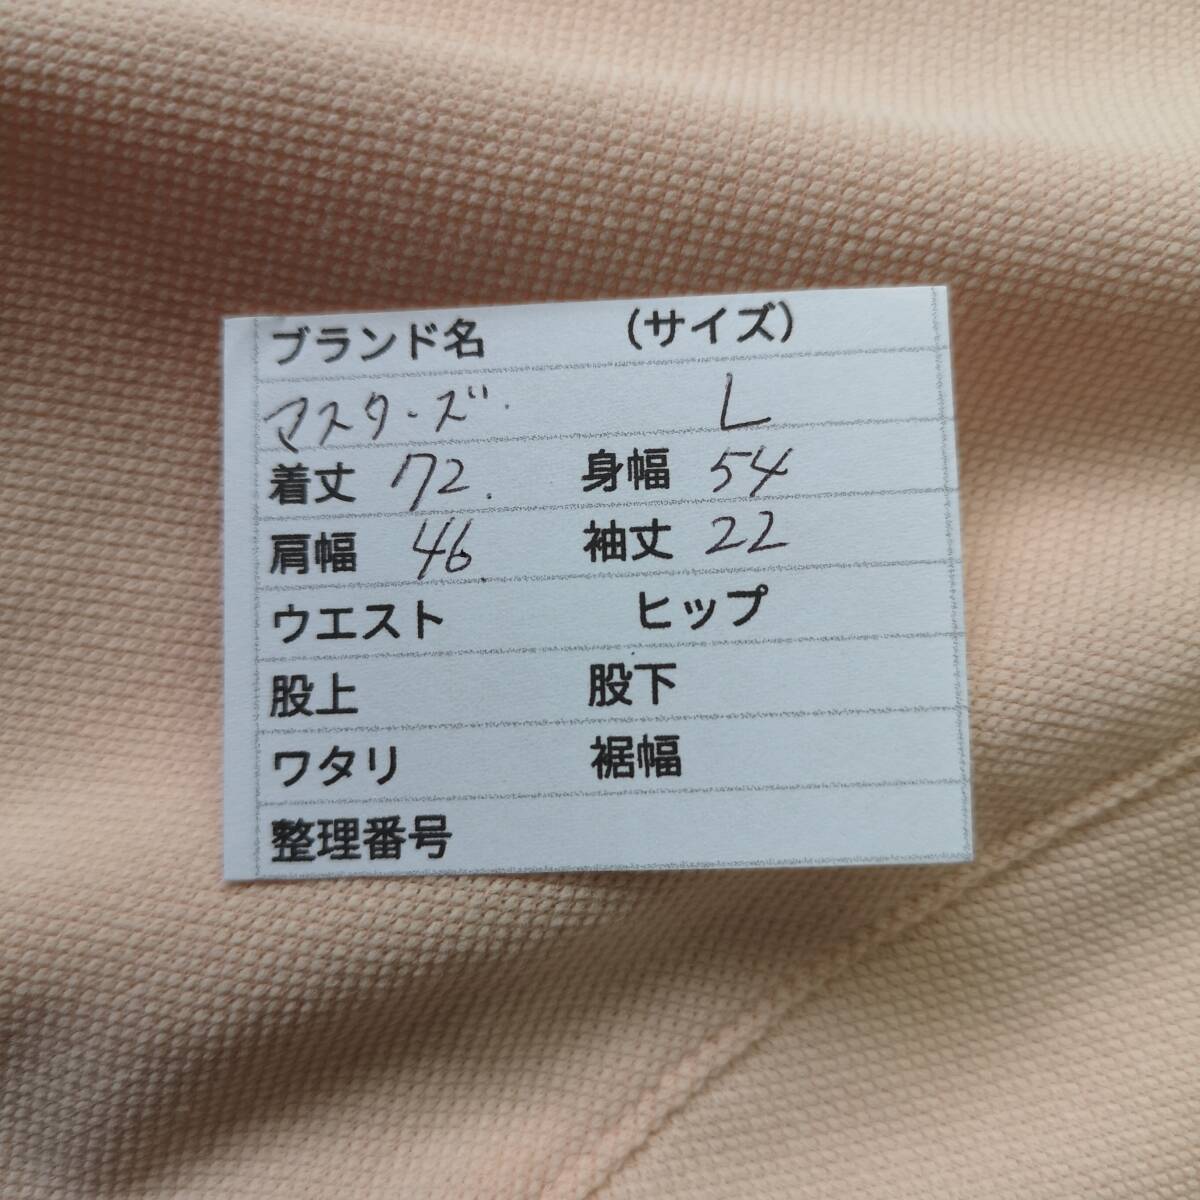 ブランド名 (サイズ)
マスターズ. L
着丈 72. 身幅 54
肩幅 46 袖丈 22
ウエスト ヒップ
股上 股下
ワタリ 裾幅
整理番号